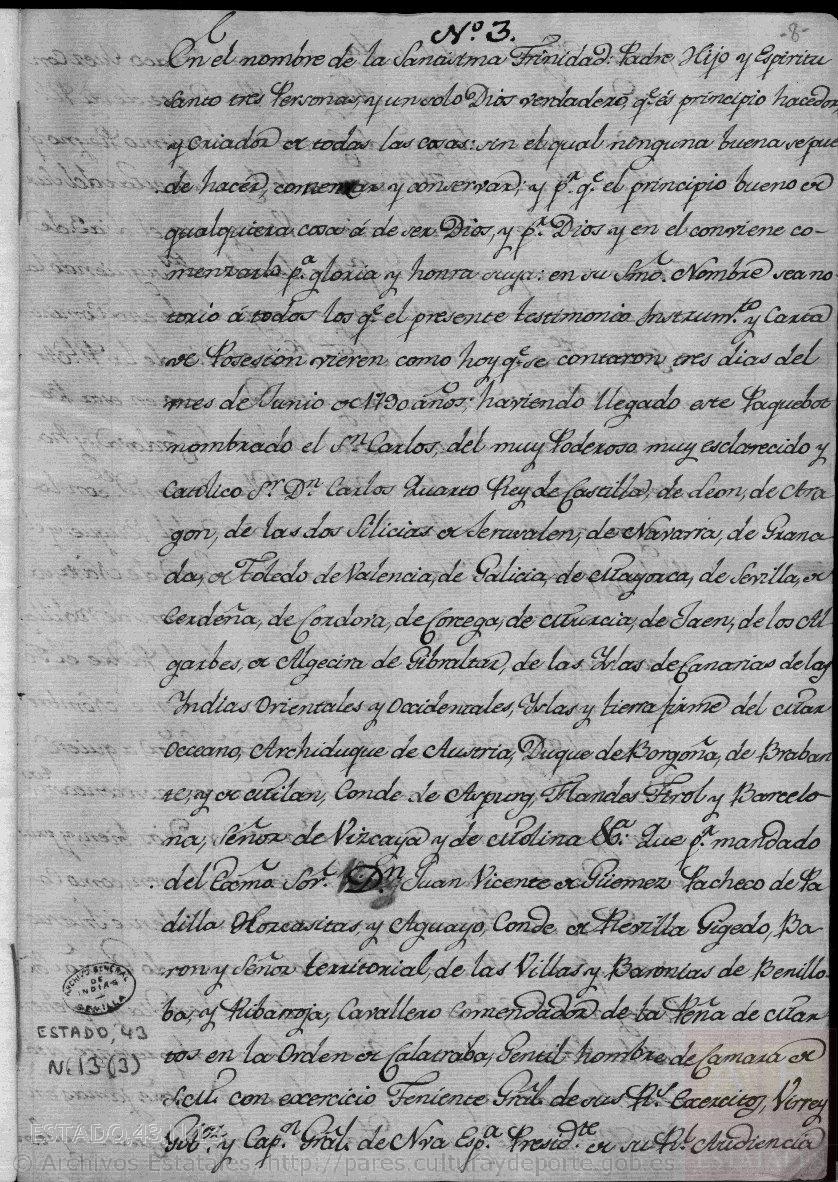 Nº 3.
-8-
En el nombre de la Santisima Trinidad: Padre Hijo y Espiritu
Santo tres Personas, y un solo Dios verdadero, q.e és principio hacedor,
y Criador de todas las cosas: sin el qual ninguna buena se pue
de hacer, comenzar y conservar, y p.r q.e el principio bueno de
qualquiera cosa á de ser Dios, y p.r Dios y en el conviene co-
menzarlo p.a gloria y honra suya: en su Smo. Nombre sea no-
torio á todos los q.e el presente testimonio Instrum.to y Carta
de Posesion vieren como hoy q.e se contaron tres dias del
mes de Junio de 1790 años; haviendo llegado este Paquebot
nombrado el S.n Carlos, del muy Poderoso muy esclarecido y
Catolico S.r D.n Carlos Quarto Rey de Castilla, de Leon, de Ara
gon, de las dos Silicias de Jerusalen, de Navarra, de Grana
da, de Toledo de Valencia, de Galicia, de Mayorca, de Sevilla, de
Cerdeña, de Cordova, de Corcega, de Murcia, de Jaen, de los Al
garbes, de Algecira de Gibraltar, de las Yslas de Canarias de las
Yndias Orientales y Occidentales, Yslas y tierra firme del Mar
Occeano, Archiduque de Austria, Duque de Borgoña, de Braban
te, y de Milan, Conde de Aspurg, Flandes Tirol y Barcelo
na, Señor de Vizcaya y de Molina &.a Que p.r mandado
del Exmo. Sor. D.n Juan Vicente de Güemez Pacheco de Pa
dilla Horcasitas, y Aguayo, Conde de Revilla Gigedo, Ba
ron y Señor territorial, de las Villas y Baronias de Benillo
ba, y Ribarroja, Cavallero Comendador de la Peña de Mar
tos en la Orden de Calatraba, Gentil hombre de Camara de
S.M. con excercicio Teniente Gral. de sus R.s Exercitos, Virrey
Gob.r y Cap.n Gral. de Nva Esp.a Presid.te de su Rl. Audiencia
ARCHIVO GENERAL
DE
INDIAS
SEVILLA
ESTADO, 43
N. 13 (3)
© Archivos Estatales, http://pares.culturaydeporte.gob.es